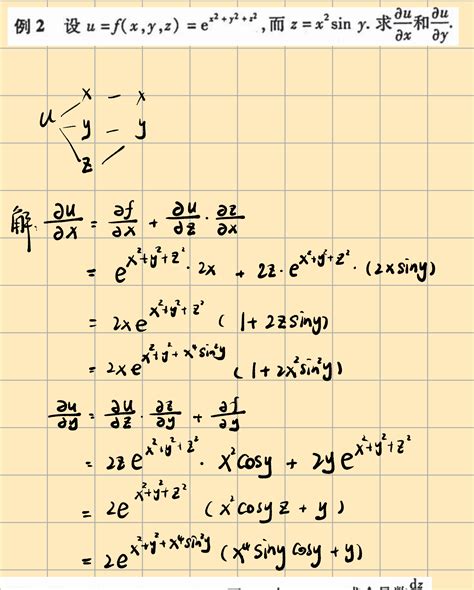 例 2 设 u=f(x,y,z)=e^{x²+y²+z²},而 z=x²sin y.求∂u/∂x和∂u/∂y.
x — x
u y — y
z
解: ∂u/∂x = ∂f/∂x + ∂u/∂z · ∂z/∂x
= e^{x²+y²+z²} · 2x + 2z · e^{x²+y²+z²} · (2xsiny)
= 2xe^{x²+y²+z²} (1+2zsiny)
= 2xe^{x²+y²+x⁴sin²y} (1+2x²sin²y)
∂u/∂y = ∂u/∂z · ∂z/∂y + ∂f/∂y
= 2ze^{x²+y²+z²} · x²cosy + 2ye^{x²+y²+z²}
= 2e^{x²+y²+z²} (x²cosy z + y)
= 2e^{x²+y²+x⁴sin²y} (x⁴siny cosy + y)
dz